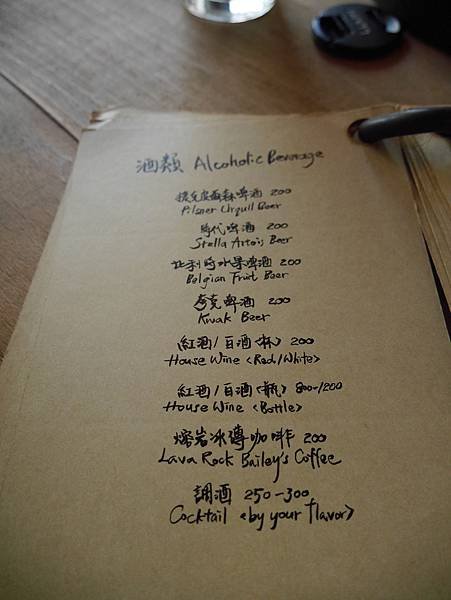 酒類 Alcoholic Beverage
捷克皮爾森啤酒 200
Pilsner Urqull Beer
時代啤酒 200
Stella Artois Beer
比利時水果啤酒 200
Belgian Fruit Beer
夸克啤酒 200
Kwak Beer
紅酒/白酒<杯> 200
House Wine <Red/White>
紅酒/白酒<瓶> 800-1200
House Wine <Bottle>
熔岩冰磚咖啡 200
Lava Rock Bailey's Coffee
調酒 250-300
Cocktail <by your flavor>